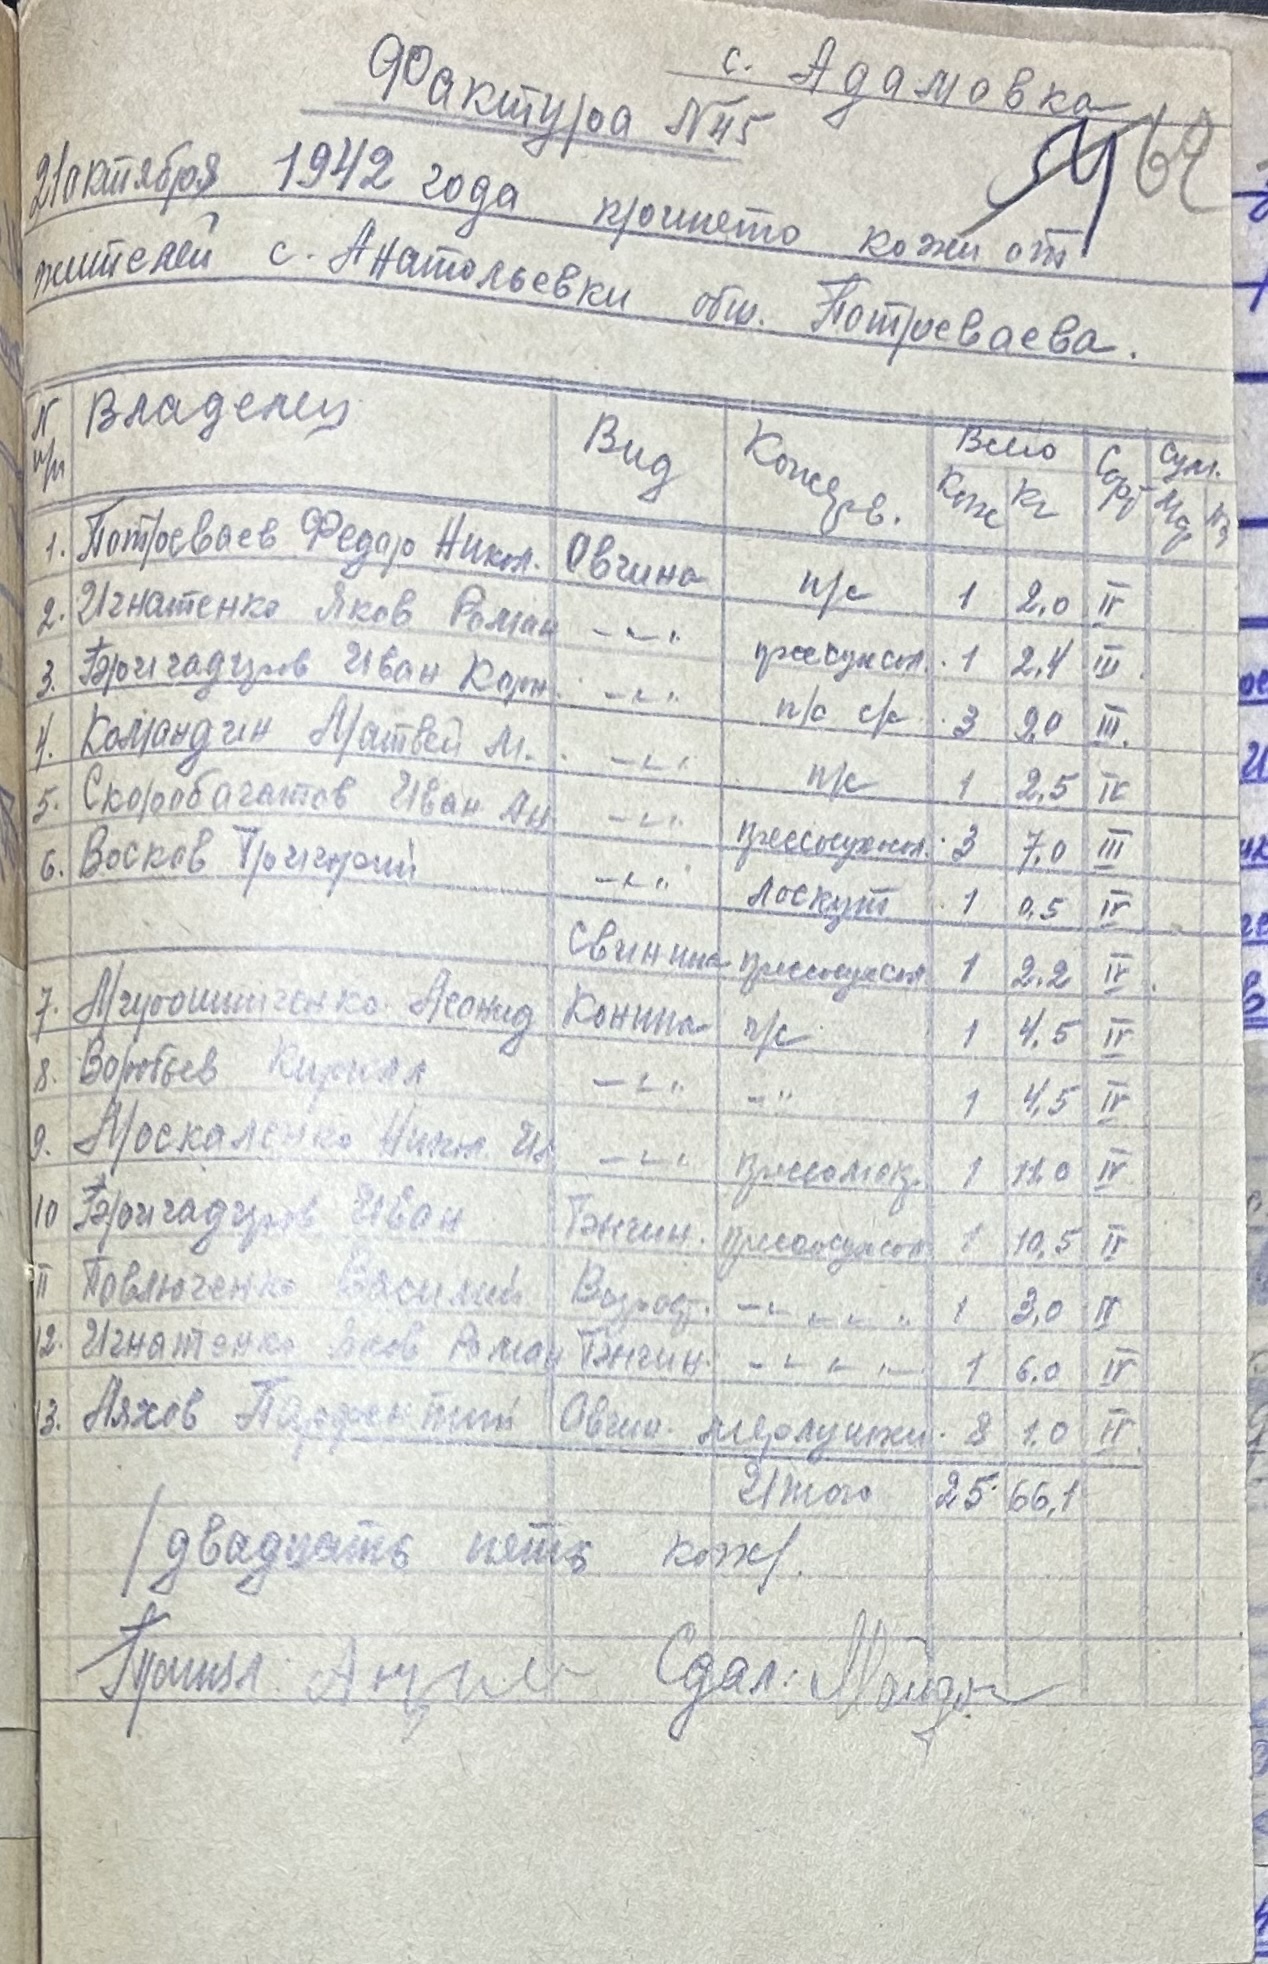 с. Адамовка
Фактура N45
62
21 октября 1942 года принято кожи от
жителей с. Анатольевки общ. Потреваева.
N п/п Владелец Вид Консерв. Всего Кож Кг Сорт Сум.
1. Потреваев Федор Никол. Овчина п/с 1 2,0 IV
2. Игнатенко Яков Роман -"- пресносухол. 1 2,4 III
3. Бригадиров Иван Корн. -"- п/с с/с 3 20 III.
4. Командин Матвей М. -"- п/с 1 2,5 IV
5. Скоробагатов Иван Ан -"- пресносухол. 3 7,0 III
6. Восков Григорий -"- лоскут 1 0,5 IV
Свинина пресносухол 1 2,2 IV
7. Леонид Конина п/с 1 4,5 IV
8. Воробьев Кирилл -"- -"- 1 4,5 IV
9. Москаленко Никол. Ив -"- 1 IV
10 Бригадиров Иван Бычин. пресносухол 1 10,5 IV
11 Повлюченко Василий -"- 1 3,0 IV
12. Игнатенко Яков Роман Бычин. -"- 1 6,0 IV
13. Ляхов Парфентий Овчин. мерлушки 8 1,0 IV
Итого 25 66,1
/двадцать пять кож/.
Принял Сдал: